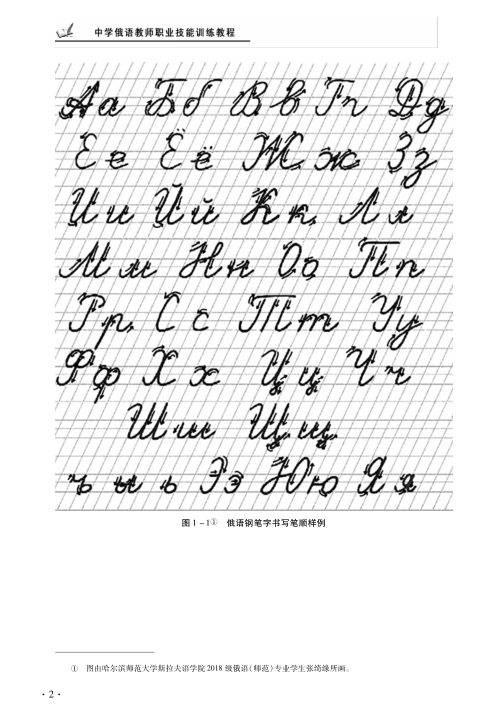 中学俄语教师职业技能训练教程
Аа Бб Вв Гг Дд
Ее Ёё Жж Зз
Ии Йй Кк Лл
Мм Нн Оо Пп
Рр Сс Тт Уу
Фф Хх Цц Чч
Шш Щщ
ъ ы ь Ээ Юю Яя
图 1-1① 俄语钢笔字书写笔顺样例
① 图由哈尔滨师范大学斯拉夫语学院 2018 级俄语(师范)专业学生张绮缘所画。
· 2 ·